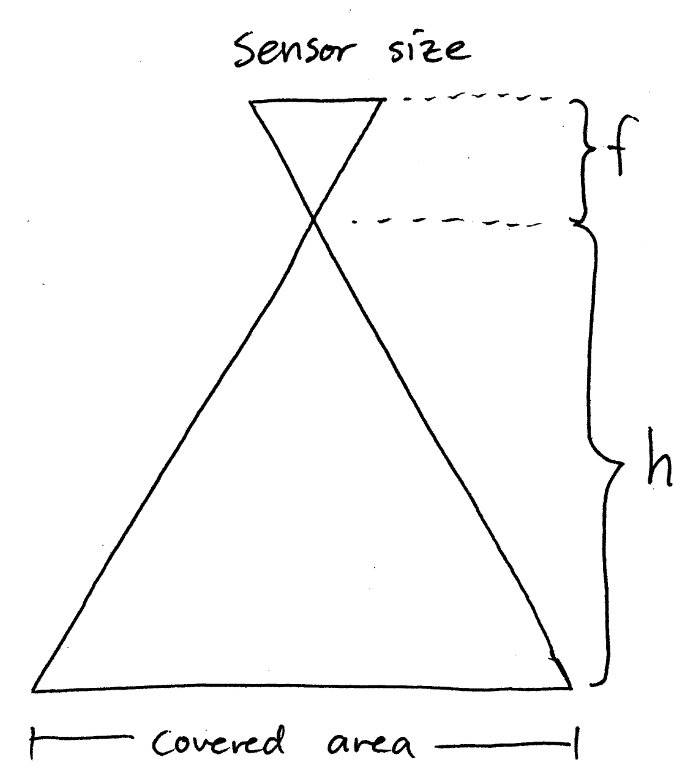 Sensor size
f
h
covered area